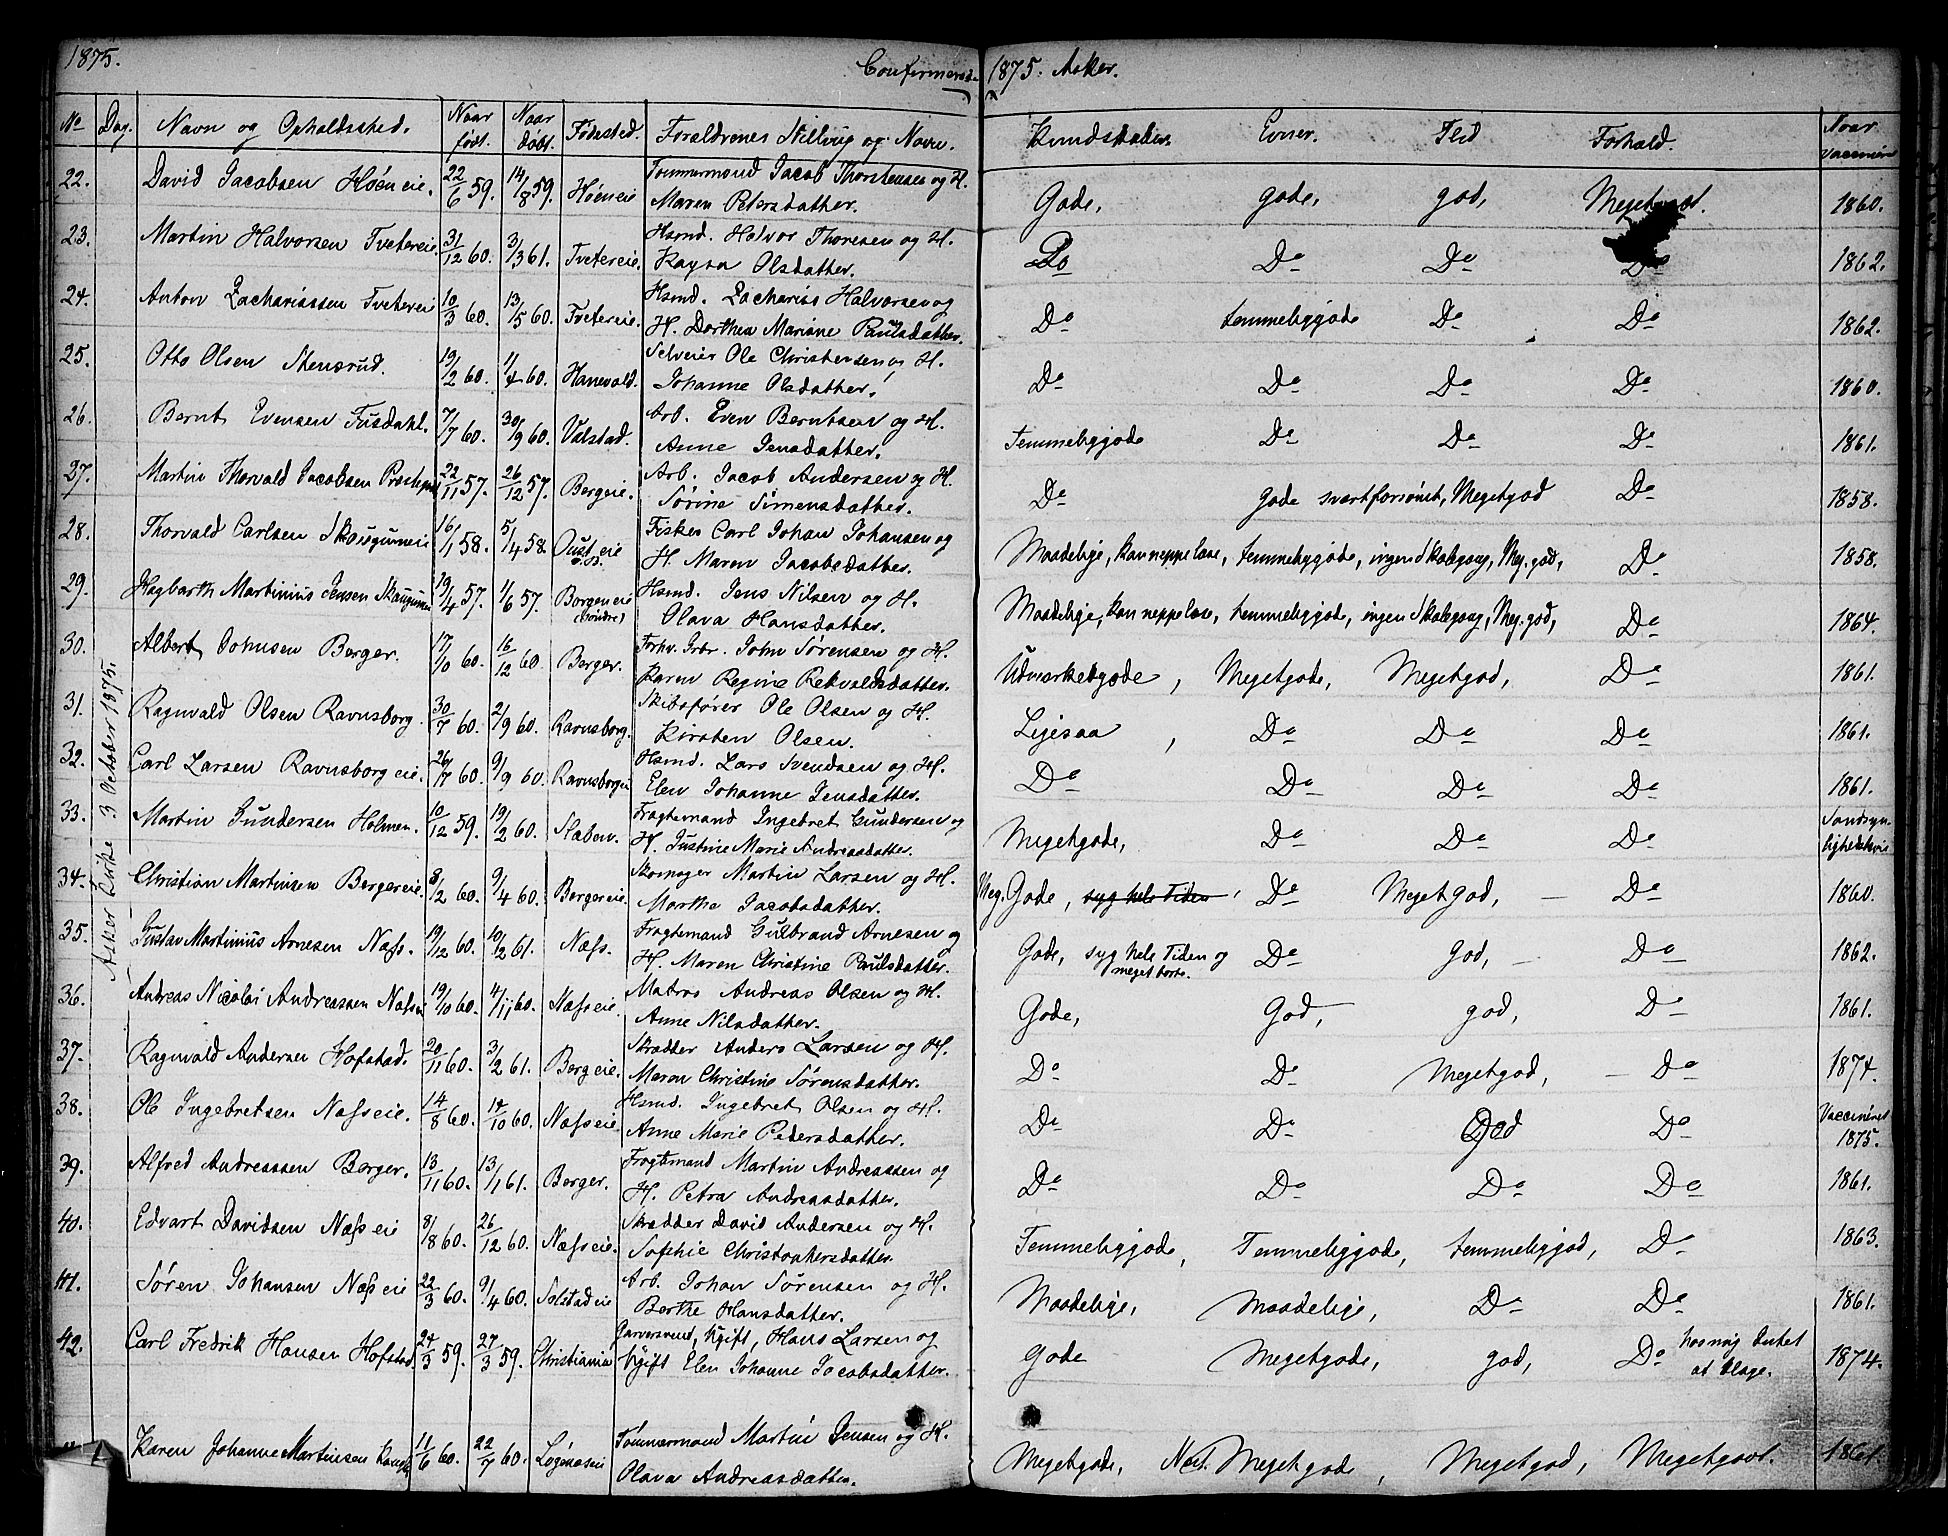 1875.
Confirmerede
1875. Asker.
No Dag. Navn og Opholdssted. Naar født. Naar døbt. Fødested. Forældrenes Stilling og Navn. Kundskaber. Evner. Flid Forhold. Naar vaccineret
Asker Kirke 3 October 1875.
22. David Jacobsen Høen eie. 22/6 59. 14/8 59. Høeneie Tømmermand Jacob Thorstensen og H. Gode, gode, god, Megetgodt. 1860.
Maren Petersdatter.
23. Martin Halvorsen Tvetereie. 31/12 60. 3/3 61. Tvetereie. Hsmd. Halvor Thoresen og H. Do Do Do Do 1862.
Kaysa Olsdatter.
24. Anton Zachariassen Tvetereie 10/3 60. 13/5 60. Tvetereie. Hsmd. Zacharias Halvorsen og Do temmeliggode Do Do 1862.
H. Dorthea Mariane Paulsdatter.
25. Otto Olsen Stensrud. 19/2 60. 11/4 60. Hanevold. Selveier Ole Christensen og H. Do Do Do Do 1860.
Johanne Olsdatter.
26. Bernt Evensen Fusdahl. 7/7 60. 30/9 60. Valstad. Arb. Even Berntsen og H. Temmeliggode Do Do Do 1861.
Anne Jensdatter.
27. Martin Thorvald Jacobsen 22/11 57. 26/12 57. Bergeie. Arb. Jacob Andersen og H. Do Gode svart forsømt, Megetgod Do 1858.
Sørine Simensdatter.
28. Thorvald Carlsen Skougumeie 16/1 58. 5/4 58. Oust eie Fisker Carl Johan Johansen og Maadelige, kan neppe læse, temmeliggode, ingen Skolegang, Meg. god, Do 1858.
H. Maren Jacobsdatter.
29. Hagbarth Martinius Jensen 19/4 57. 1/6 57. Borgeneie (Søndre) Hsmd. Jens Nilsen og H. Maadelige, kan neppe læse, temmeliggode, ingen Skolegang, Meg. god, Do 1864.
Olava Hansdatter.
30. Albert Johnsen Berger. 17/10 60. 16/12 60. Berger. Forhv. Grbr. John Sørensen og H. Udmærketgode, Megetgode, Megetgod, Do 1861.
Karen Regine Rekvaldsdatter.
31. Ragnvald Olsen Ravnsborg. 30/7 60. 2/9 60. Ravnsborg. Skibsfører Ole Olsen og H. Ligesaa, Do Do Do 1861.
Kirsten Olsen.
32. Carl Larsen Ravnsborg eie. 26/7 60. 9/9 60. Ravnsborgeie Hsmd. Lars Svendsen og H. Do Do Do Do 1861.
Elen Johanne Jensdatter.
33. Martin Gundersen Holmen. 10/12 59. 19/2 60. Slaben. Fragtemand Ingebret Gundersen og Megetgode, Do Do Do Sandsyn-
H. Justine Marie Andreasdatter.
34. Christian Martinsen Bergereie. 8/2 60. 9/4 60. Bergereie. Skomager Martin Larsen og H. Meg. Gode, syg hele Tiden Do Megetgod, Do 1860.
Marthe Jacobsdatter.
35. Gustav Martinius Arnesen Næss. 19/12 60. 10/2 61. Næss. Fragtemand Gulbrand Arnesen og Gode, syg hele Tiden og Do god, Do 1862.
H. Maren Christine Paulsdatter. meget borte.
36. Andreas Nicolai Andreassen Næsseie 19/10 60. 4/11 60. Næsseie. Matros Andreas Olsen og H. Gode, God, god, Do 1861.
Anne Nilsdatter.
37. Ragnvald Andersen Hofstad. 20/11 60. 3/2 61. Bergeie. Skrædder Anders Larsen og H. Do Do Megetgod, Do 1874.
Maren Christine Sørensdatter.
38. Ole Ingebretsen Næsseie. 14/8 60. 14/10 60. Næsseie. Hsmd. Ingebret Olsen og H. Do Do God Do Vaccineret
Anne Marie Petersdatter. 1875.
39. Alfred Andreassen Berger. 13/11 60. 13/1 61. Berger. Fragtemand Martin Andreassen og Do Do Do Do 1861.
H. Petra Andreasdatter.
40. Edvart Davidsen Næss eie 8/8 60. 26/12 60. Næsseie. Skrædder David Andersen og H. Temmeliggode, Temmeliggode, temmeliggod, Do 1863.
Sofphie Christophersdatter.
41. Søren Johansen Næss eie 22/3 60. 9/4 60. Solstadeie Arb. Johan Sørensen og H. Maadelige, Maadelige, Do Do 1861.
Berthe Hansdatter.
42. Carl Fredrik Hansen Hofstad 24/3 59. 27/3 59. Christiania Garversvend, Ugift, Hans Larsen og Gode Megetgode, god, Do hosmig Intet 1874.
Ugift Elen Johanne Jacobsdatter. at klage.
Karen Johanne Martinsen 11/6 60. 22/7 60. Tømmermand Martin Jensen og H. Megetgode, Megetgode, Megetgod, Megetgodt. 1861.
Olava Andreasdatter.